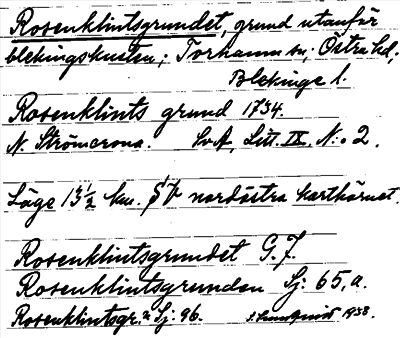 Rosenklintsgrundet, grund utanför
blekingskusten; Torhamn sn; Östra hd;
Blekinge l.
Rosenklints grund 1734.
N Strömcrona. SvA, Litt. IX, N:o 2.
Läge 13½ km. SV nordöstra karthörnet.
Rosenklintsgrundet G.J.
Rosenklintsgrunden Sj: 65, a.
Rosenklintsgr. Sj: 96. 1938.